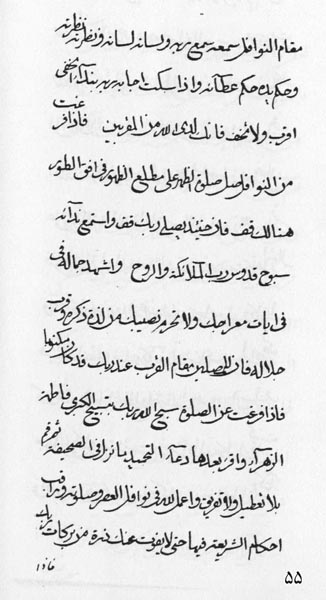 مقام النوافل سمعه سمع ربه ولسانه لسانه ونظره نظر ربه
وحكم يده حكم عطائه واذا سكت اجابه ربه بندائه الخفي
اقرب ولا تخف فانك لدى الله من المقربين فاذا فرغت
من النوافل صل صلوة الظهر على مطلع الظهور في افق الطور
هنالك قف فان حينئذ يصلي ربك فقف واستمع ندائه
سبوح قدوس رب الملائكة والروح واشهد جماله في
في ايات معراجك ولا تحرم نصيبك من لذة ذكره وقرب
جلاله فان للمصلين مقام القرب عند ربك قد كان مكنونا
فاذا فرغت عن الصلوة سبح الله ربك بتسبيح الكبرى فاطمة
الزهراء واقرء بعدها دعاء التحميد ما نزل في الصحيفة ثم قم
بلا تعطيل ولا تفريق واعمل لله في نوافل العصر وصلوته وراقب
احكام الشريعة فيها حتى لا يفوت عنك ذرة من بركات ربك
فاذا
۵۵